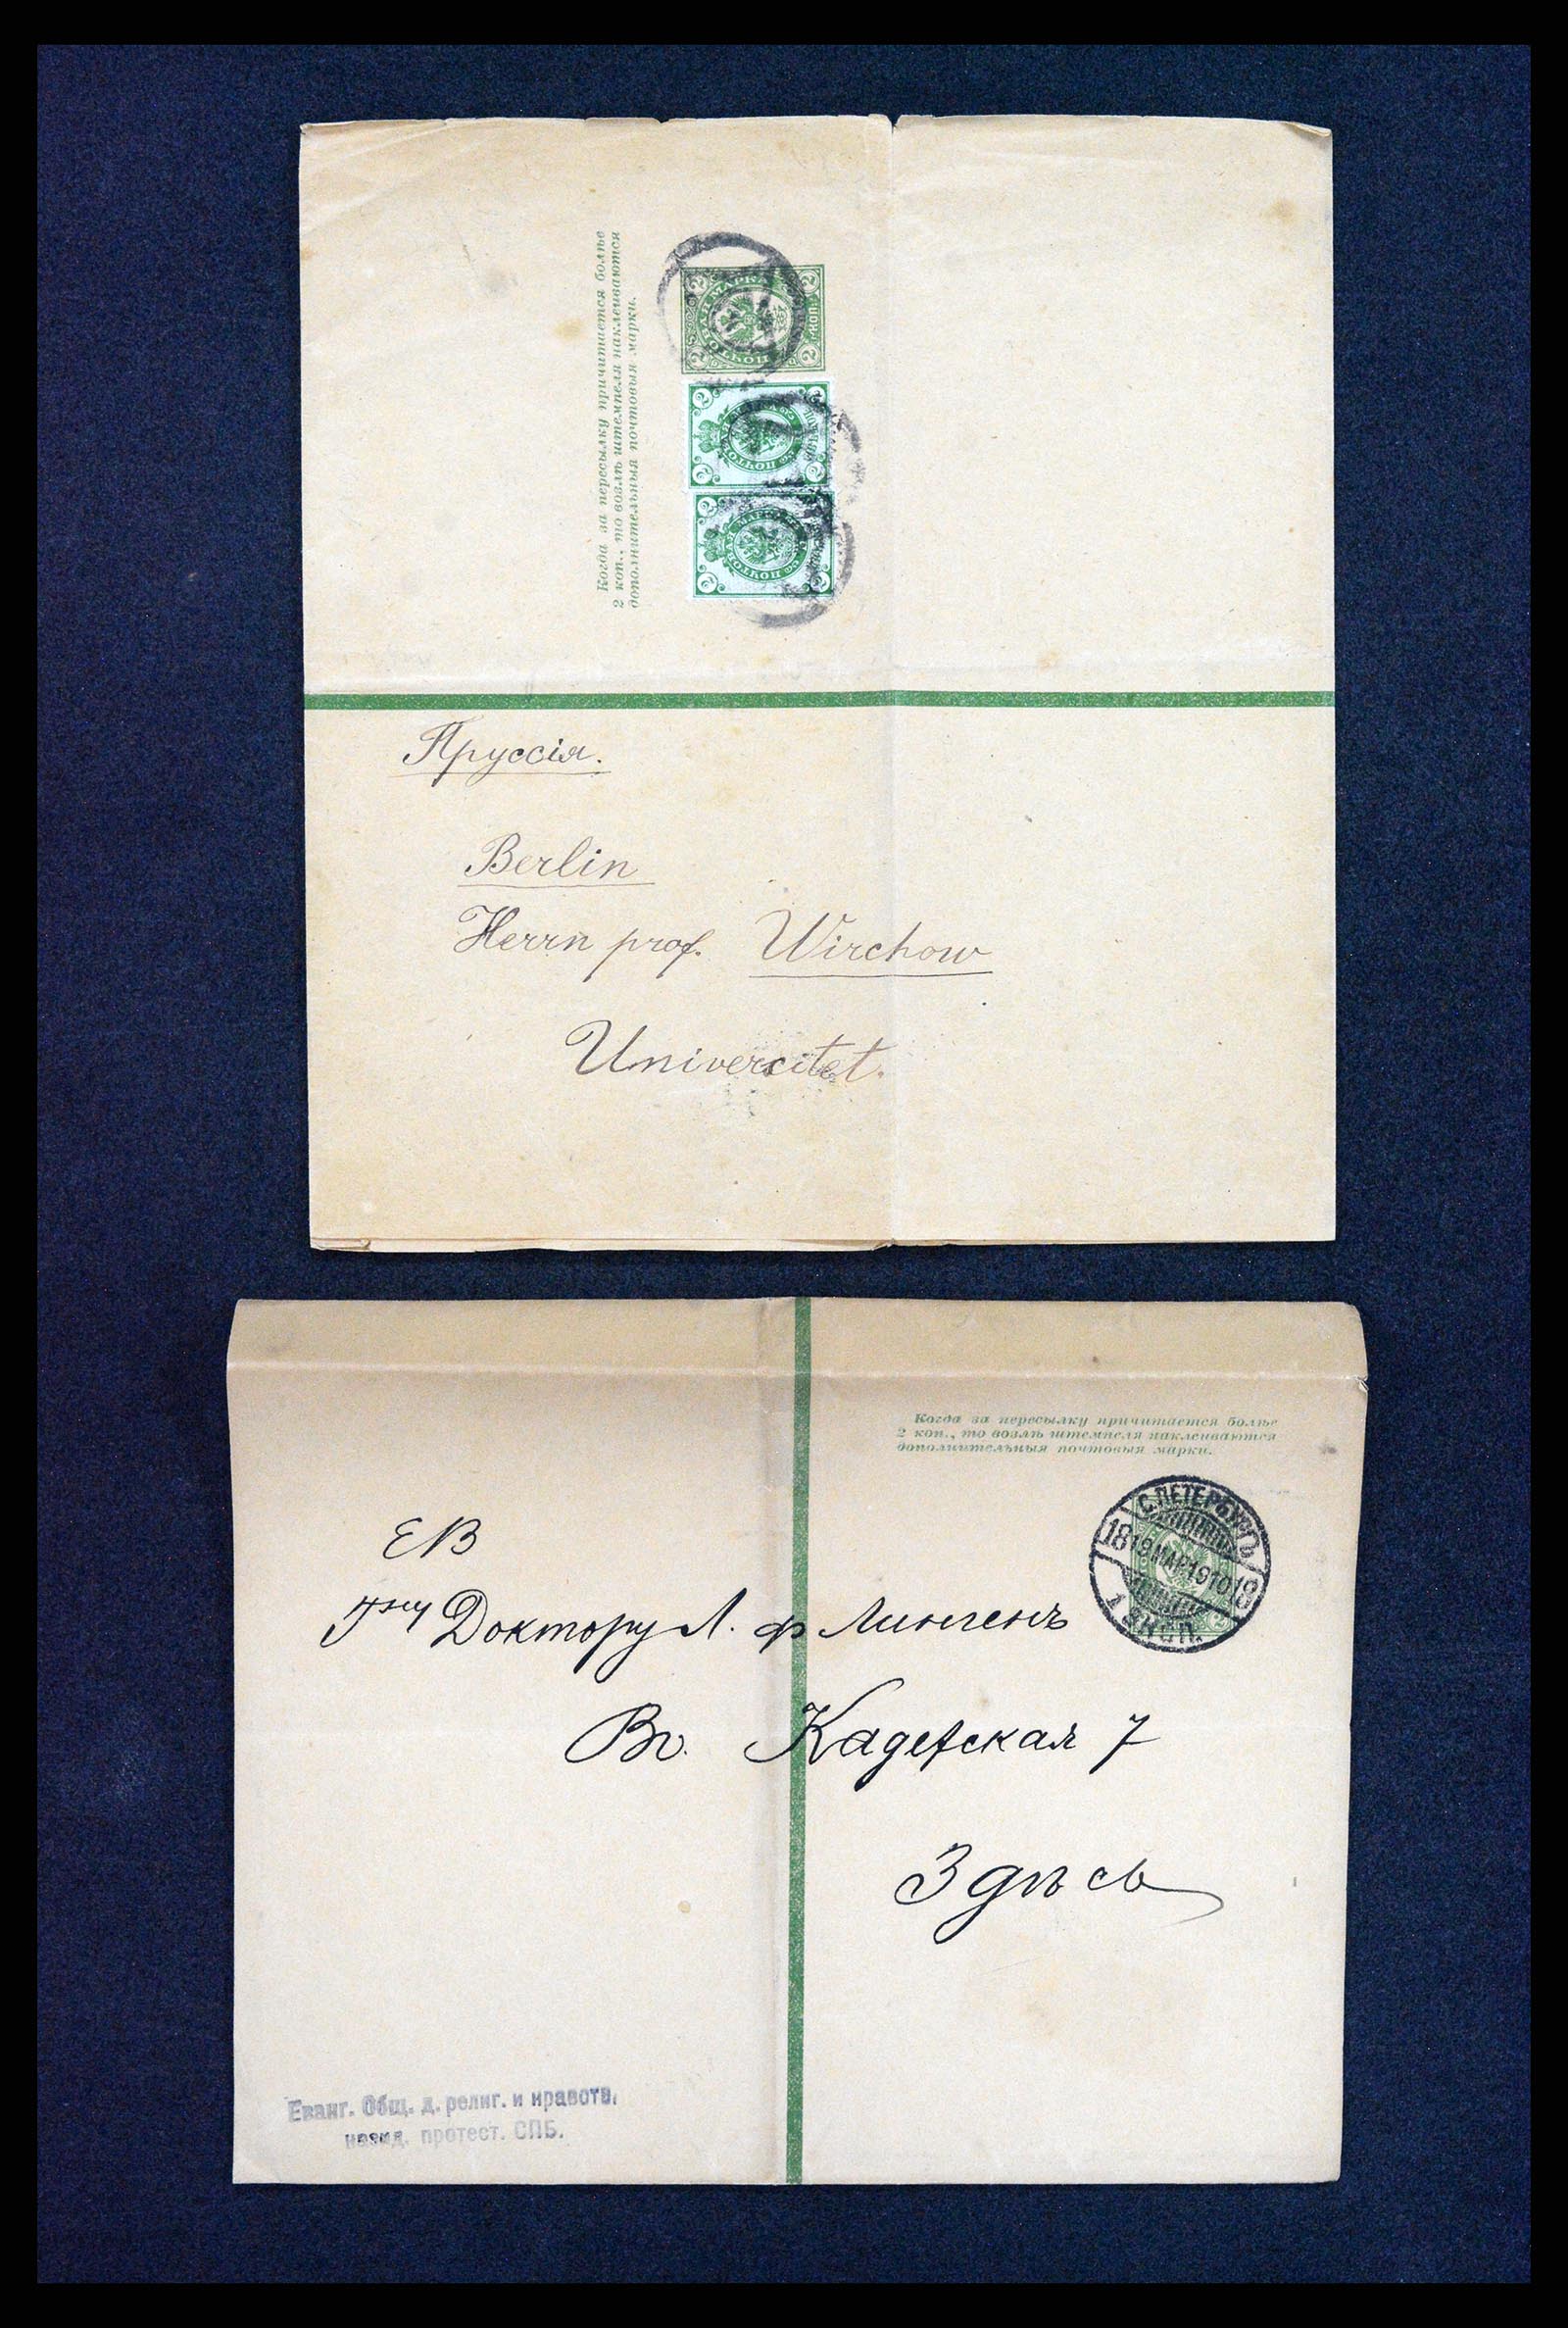 Когда за пересылку причитается болѣе
2 коп., то возлѣ штемпеля наклеиваются
дополнительныя почтовыя марки.
Пруссія.
Berlin
Herrn prof. Wirchow
Universitet.
Когда за пересылку причитается болѣе
2 коп., то возлѣ штемпеля наклеиваются
дополнительныя почтовыя марки.
С.ПЕТЕРБУРГЪ
18 19 МАР. 1910
1 ЭКСП.
ЕВ
Гну Доктору Л. ф Лингенъ
Во. Кадетская 7
Здѣсь
Еванг. Общ. д. религ. и нравств.
назид. протест. СПБ.